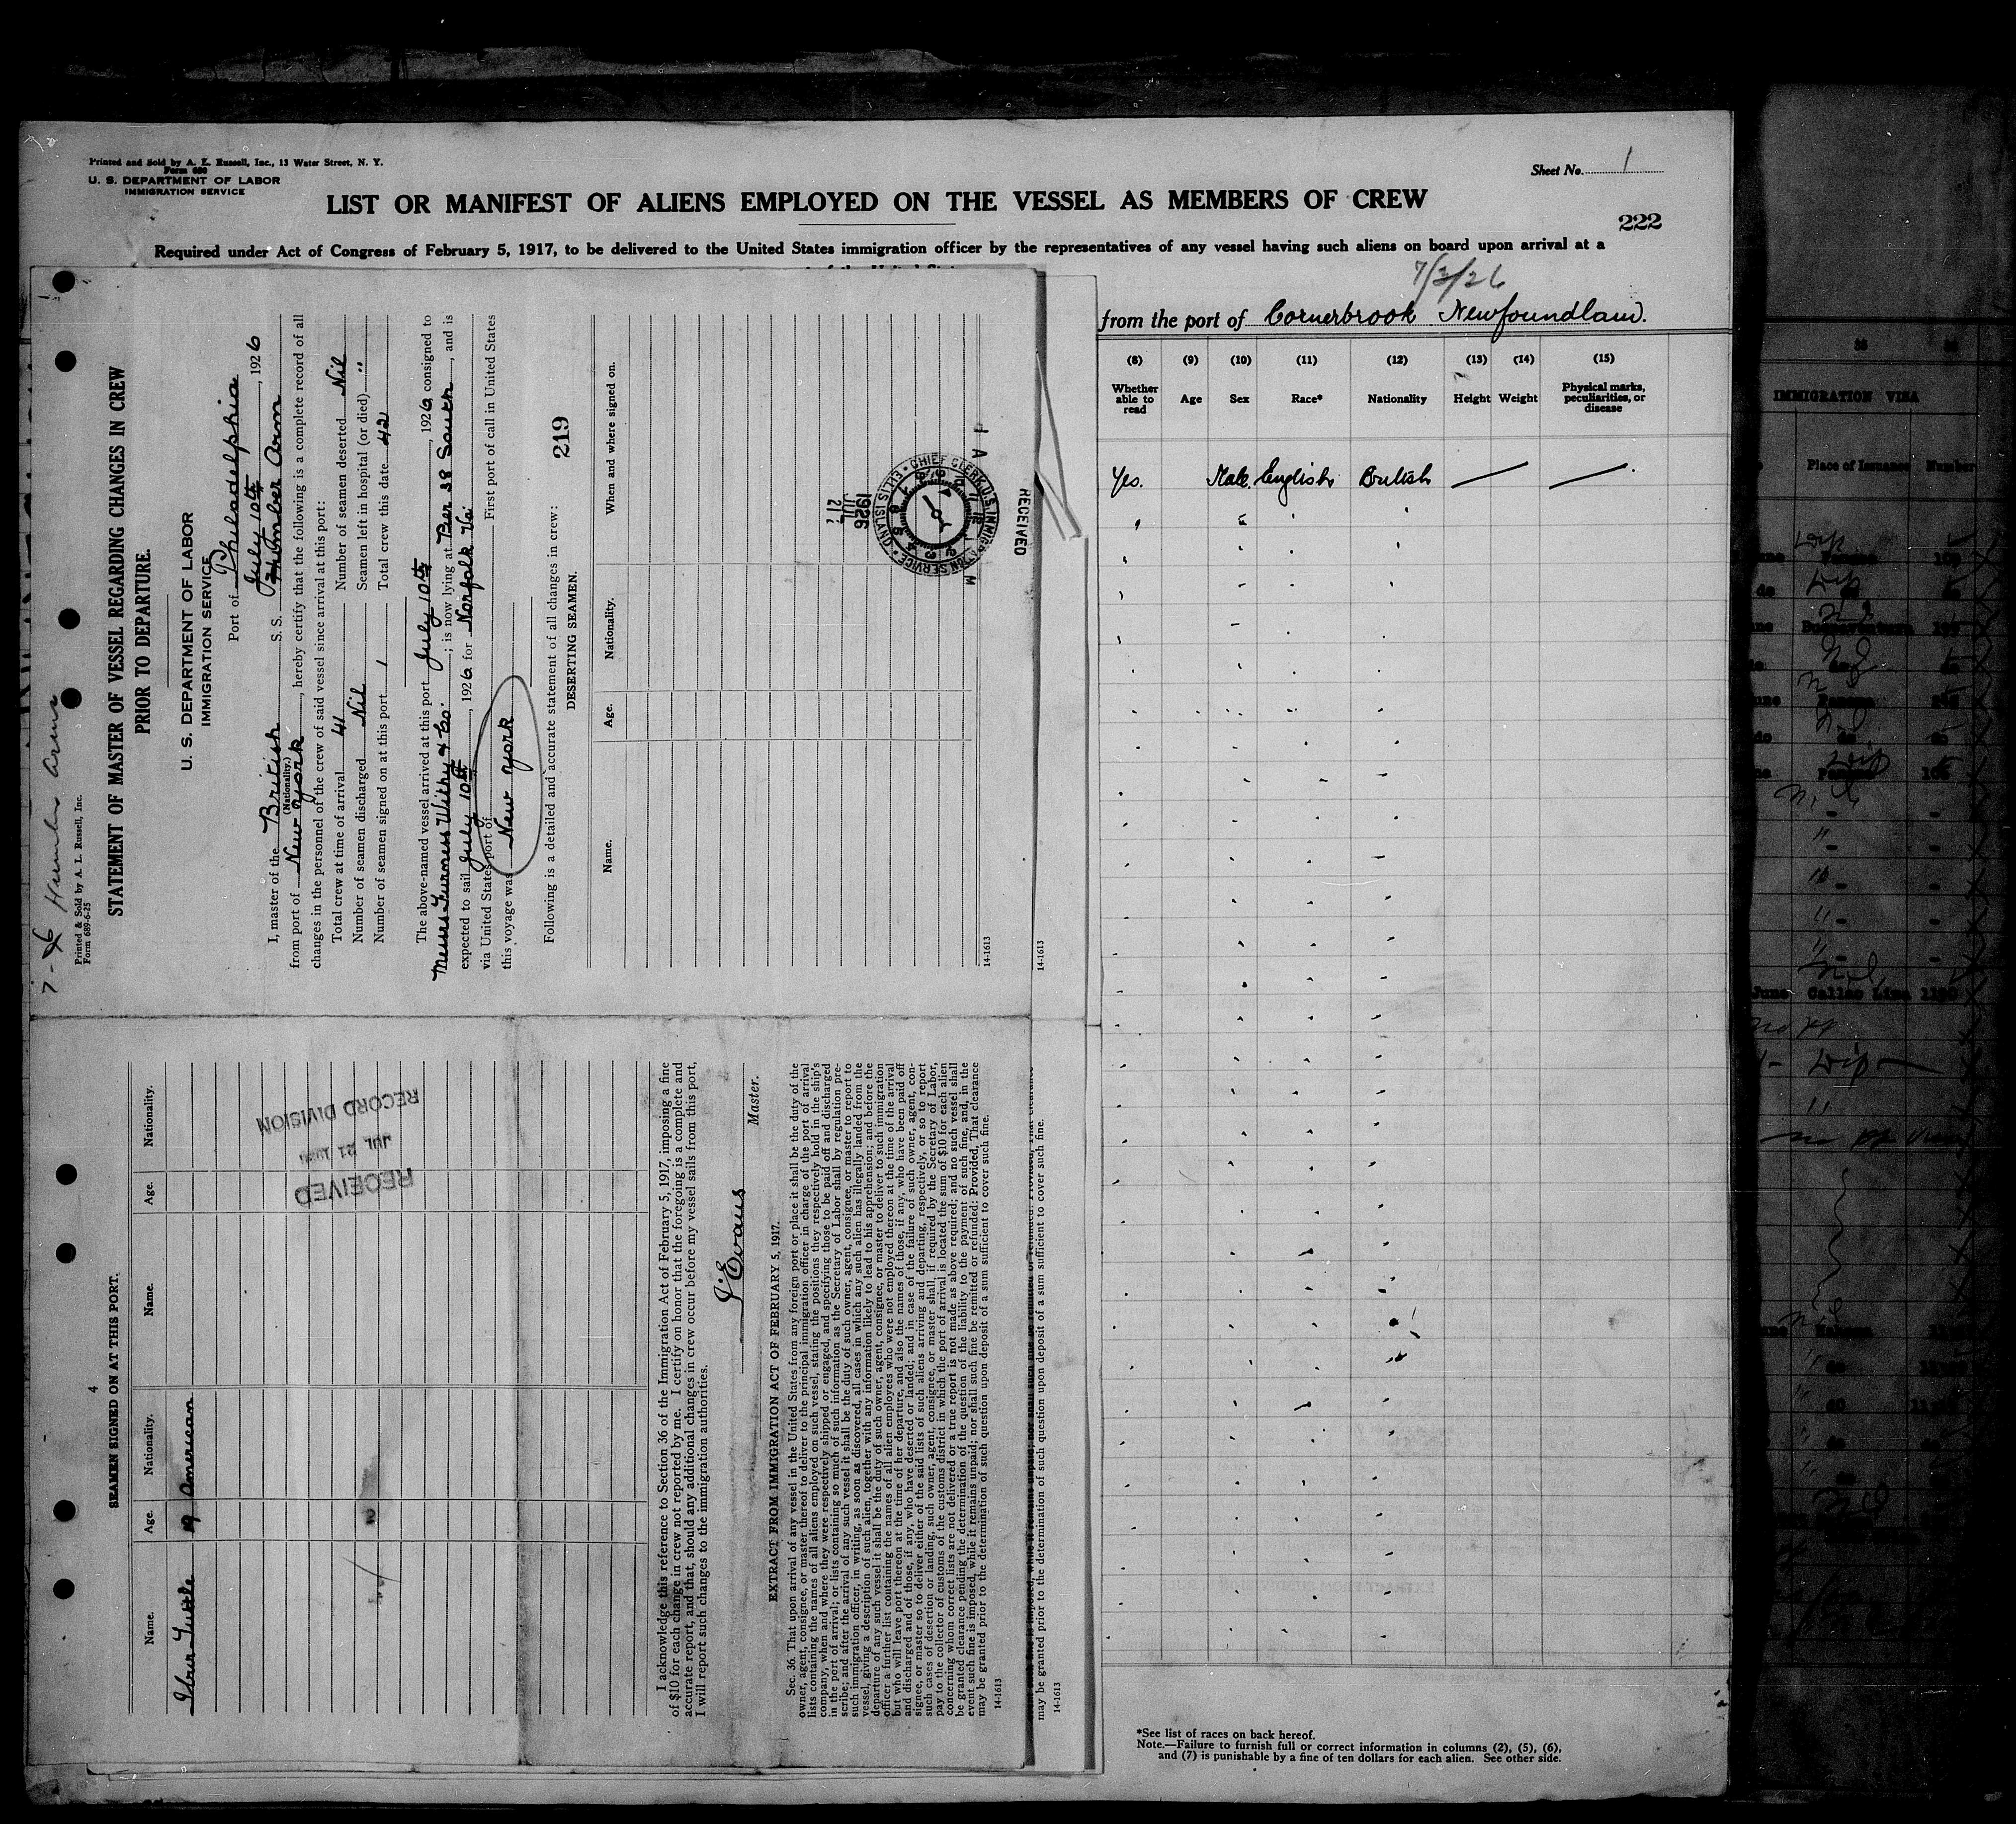 Printed and Sold by A. L. Russell, Inc., 13 Water Street, N. Y.
Form 680
U. S. DEPARTMENT OF LABOR
IMMIGRATION SERVICE
Sheet No. 1
LIST OR MANIFEST OF ALIENS EMPLOYED ON THE VESSEL AS MEMBERS OF CREW
222
Required under Act of Congress of February 5, 1917, to be delivered to the United States immigration officer by the representatives of any vessel having such aliens on board upon arrival at a
7/3/26
from the port of Cornerbrook Newfoundland.
(8) (9) (10) (11) (12) (13) (14) (15)
Whether able to read Age Sex Race* Nationality Height Weight Physical marks, peculiarities, or disease
Yes. Male English British
*See list of races on back hereof.
Note.—Failure to furnish full or correct information in columns (2), (5), (6),
and (7) is punishable by a fine of ten dollars for each alien. See other side.
Printed & Sold by A. L. Russell, Inc.
Form 689-6-25
STATEMENT OF MASTER OF VESSEL REGARDING CHANGES IN CREW
PRIOR TO DEPARTURE.
U. S. DEPARTMENT OF LABOR
IMMIGRATION SERVICE
Port of Philadelphia
July 10th, 1926
I, master of the British S. S. Humber Arm
(Nationality.)
from port of New York, hereby certify that the following is a complete record of all
changes in the personnel of the crew of said vessel since arrival at this port:
Total crew at time of arrival 41 Number of seamen deserted Nil
Number of seamen discharged Nil Seamen left in hospital (or died) "
Number of seamen signed on at this port 1 Total crew this date 42
The above-named vessel arrived at this port July 10th, 1926, consigned to
Messrs Furness Withy & Co.; is now lying at Pier 38 South, and is
expected to sail July 10th, 1926 for Norfolk Va.
via United States port of First port of call in United States
this voyage was New York
Following is a detailed and accurate statement of all changes in crew:
219
DESERTING SEAMEN.
Name. Age. Nationality. When and where signed on.
14-1613
14-1613
RECEIVED
CHIEF CLERK, U.S. IMMIGRATION SERVICE
ELLIS ISLAND
1926
JUL
21
4
SEAMEN SIGNED ON AT THIS PORT.
Name. Age. Nationality. Name. Age. Nationality.
Tuttle 19 American
RECEIVED
JUL 21 1926
RECORD DIVISION
I acknowledge this reference to Section 36 of the Immigration Act of February 5, 1917, imposing a fine
of $10 for each change in crew not reported by me. I certify on honor that the foregoing is a complete and
accurate report, and that, should any additional changes in crew occur before my vessel sails from this port,
I will report such changes to the immigration authorities.
J. Evans
Master.
EXTRACT FROM IMMIGRATION ACT OF FEBRUARY 5, 1917.
Sec. 36. That upon arrival of any vessel in the United States from any foreign port or place it shall be the duty of the
owner, agent, consignee, or master thereof to deliver to the principal immigration officer in charge of the port of arrival
lists containing the names of all aliens employed on such vessel, stating the positions they respectively hold in the ship's
company, when and where they were respectively shipped or engaged, and specifying those to be paid off and discharged
in the port of arrival; or lists containing so much of such information as the Secretary of Labor shall by regulation pre-
scribe; and after the arrival of any such vessel it shall be the duty of such owner, agent, consignee, or master to report to
such immigration officer, in writing, as soon as discovered, all cases in which any such alien has illegally landed from the
vessel, giving a description of such alien, together with any information likely to lead to his apprehension; and before the
departure of any such vessel it shall be the duty of such owner, agent, consignee, or master to deliver to such immigration
officer a further list containing the names of all alien employees who were not employed thereon at the time of the arrival
but who will leave port thereon at the time of her departure, and also the names of those, if any, who have been paid off
and discharged and of those, if any, who have deserted or landed; and in case of the failure of such owner, agent, con-
signee, or master so to deliver either of the said lists of such aliens arriving and departing, respectively, or so to report
such cases of desertion or landing, such owner, agent, consignee, or master shall, if required by the Secretary of Labor,
pay to the collector of customs of the customs district in which the port of arrival is located the sum of $10 for each alien
concerning whom correct lists are not delivered or a true report is not made as above required; and no such vessel shall
be granted clearance pending the determination of the question of the liability to the payment of such fine, and, in the
event such fine is imposed, while it remains unpaid; nor shall such fine be remitted or refunded: Provided, That clearance
may be granted prior to the determination of such question upon deposit of a sum sufficient to cover such fine.
14-1613
may be granted prior to the determination of such question upon deposit of a sum sufficient to cover such fine.
14-1613
IMMIGRATION VISA
Place of Issuance Number